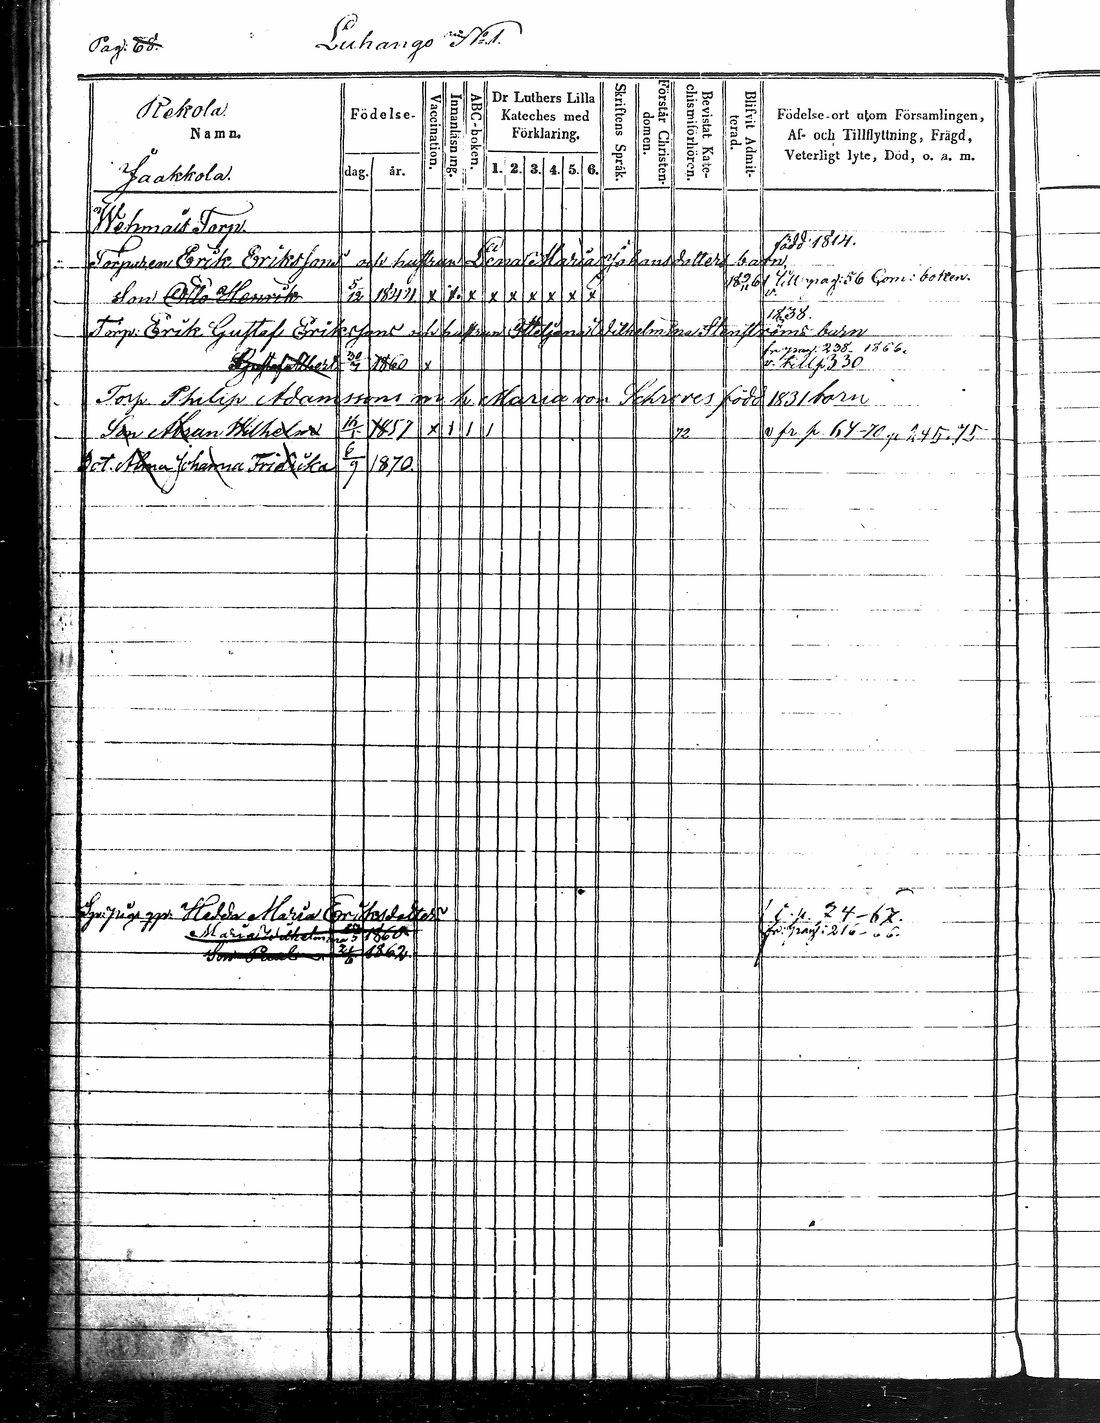 Pag: 68.
Luhango No 1.
Rekola.
Namn.
Jaakkola.
Födelse-
dag.
år.
Vaccination.
Innanläsning.
ABC-boken.
Dr Luthers Lilla
Kateches med
Förklaring.
1. 2. 3. 4. 5. 6.
Skriftens Språk.
Förstår Christen-
domen.
Bevistat Kate-
chismiförhören.
Blifvit Admit-
terad.
Födelse-ort utom Församlingen,
Af- och Tillflyttning, Frägd,
Veterligt lyte, Död, o. a. m.
Wehmais Torp.
född 1814.
Torparen Erik Eriksson och hustrun Lena Maria Johansdotters barn,
Son Otto Henrik 5/12 1844 x x x x x x x x till pag: 56 Com: boken.
1838.
Torp: Erik Gustaf Erikssons och hustrun Wilhelmina Stenströms barn
fr pag: 238 1866.
Gustaf Albert 30/7 1860 x v. till p 330
Torp Philip Adamssons m h Maria von Schreves född 1831 barn
Son Abram Wilhelm 16/1 1857 x 1 1 1 72 v fr p 64-70 p 245.75
Dot. Alma Johanna Fridrika 6/9 1870.
Hedda Maria Eriksdotter f. p. 24-67.
Maria Wilhelmina 1860 fr. pag: 216-66.
Son Paul 1862.